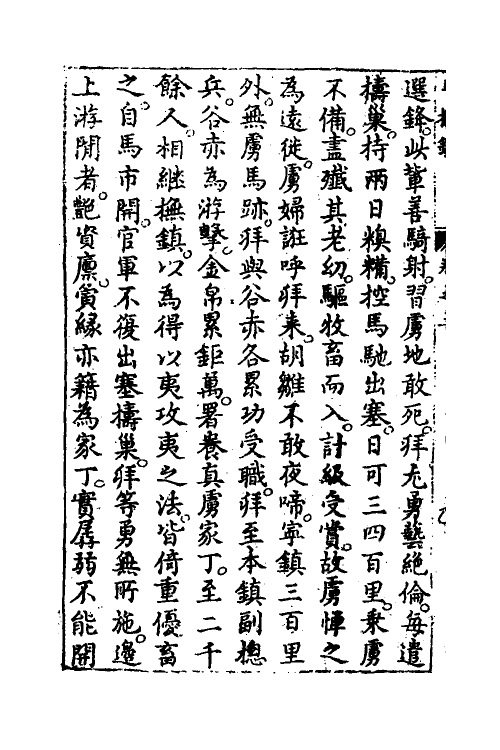 選鋒此輩善騎射習虜地敢死拜尤勇藝絶倫每遣
擣巢持兩日糗糒控馬馳出塞日可三四百里乘虜
不備盡殲其老幼驅牧畜而入計級受賞故虜憚之
為遠徙虜婦誑呼拜来胡雛不敢夜啼寧鎮三百里
外無虜馬跡拜與谷赤各累功受職拜至本鎮副總
兵谷赤為游擊金帛累鉅萬署養真虜家丁至二千
餘人相継撫鎮以為得以夷攻夷之法皆倚重優畜
之自馬市開官軍不復出塞擣巢拜等勇無所施邊
上游閒者艷資廪夤縁亦藉為家丁實孱弱不能開